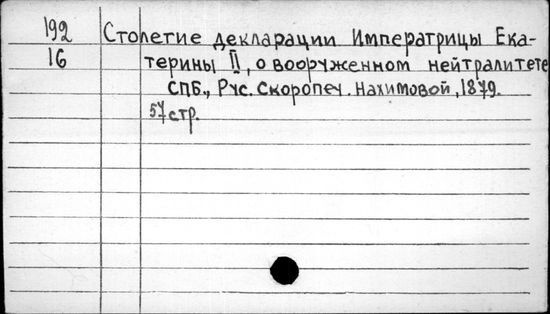 192 Столетие декларации Императрицы Ека-
16 терины II, о вооруженном нейтралитете
СПБ., Рус. Скоропеч. Нахимовой, 1879.
57 стр.